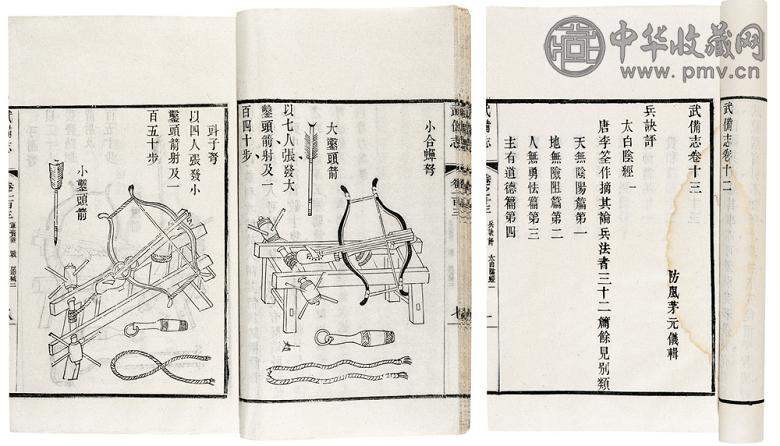 中华收藏网
www.pmv.cn
武備志卷十二
武備志卷十三
防風茅元儀輯
兵訣評
太白陰經一
唐李筌作摘其論兵法者三十二篇餘見別類
天無陰陽篇第一
地無險阻篇第二
人無勇怯篇第三
主有道德篇第四
武備志
卷之十三
兵訣評
太白陰經一
武備志
卷一百三
小合蟬弩
大鑿頭箭
以七人張發大
鑿頭箭射及一
百四十步
子弩
以四人張發小
鑿頭箭射及一
百五十步
小鑿頭箭
武備志